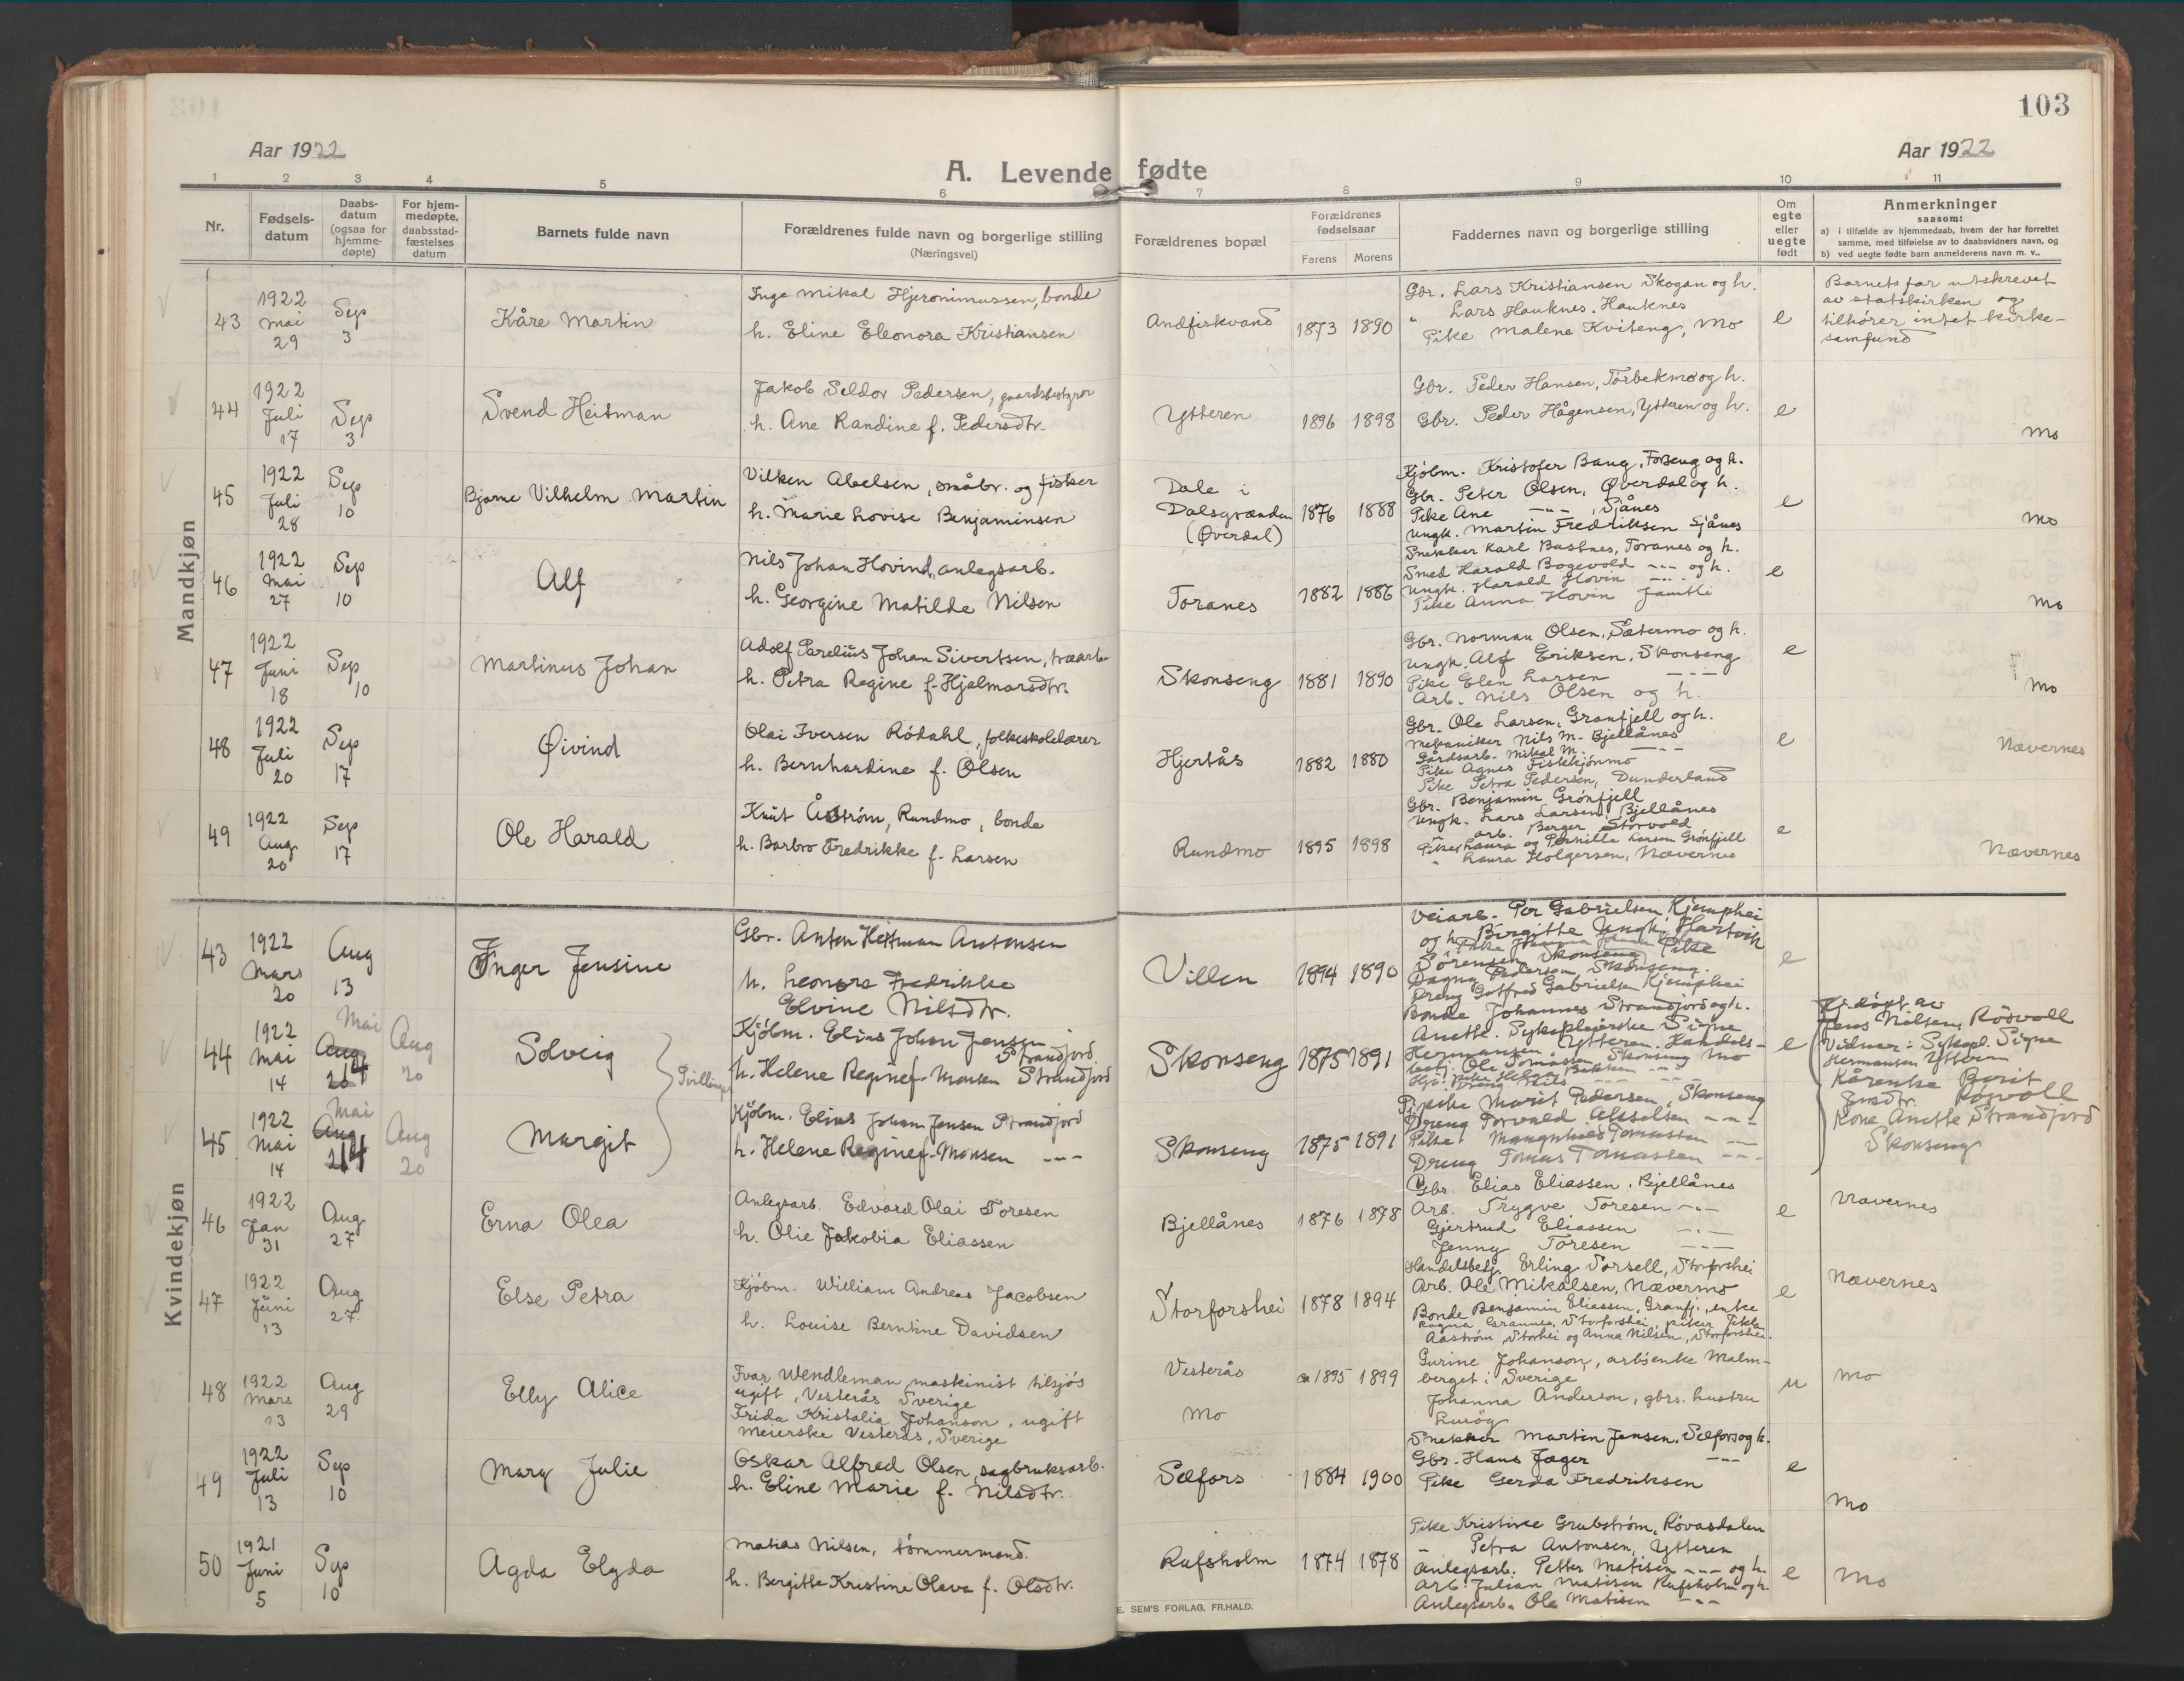 103
Aar 1922
Aar 1922
A. Levende fødte
1 2 3 4 5 6 7 8 9 10 11
Nr.
Fødsels-
datum
Daabs-
datum
(ogsaa for
hjemme-
døpte)
For hjem-
medøpte,
daabsstad-
fæstelses
datum
Barnets fulde navn
Forældrenes fulde navn og borgerlige stilling
(Næringsvei)
Forældrenes bopæl
Forældrenes
fødselsaar
Farens Morens
Faddernes navn og borgerlige stilling
Om
egte
eller
uegte
født
Anmerkninger
saasom:
a) i tilfælde av hjemmedaab, hvem der har forrettet
samme, med tilføielse av to daabsvidners navn, og
b) ved uegte fødte barn anmelderens navn m. v..
Mandkjøn
43
1922
Mai
29
Sep
3
Kåre Martin
Inge Mikal Hjeronimussen, bonde
h. Eline Eleonora Kristiansen
Andfiskvand
1873 1890
Gbr. Lars Kristiansen Skogan og h.
" Lars Hauknes. Hauknes
Pike Malene Kviteng, Mo
e
Barnets far utskrevet
av statskirken og
tilhører intet kirke-
samfund
44
1922
Juli
17
Sep
3
Svend Heitman
Jakob Seldor Pedersen, gaardsbestyrer
h. Ane Randine f. Pedersdtr.
Ytteren
1896 1898
Gbr. Peder Hansen, Torbekmo og h.
Gbr. Peder Hågensen, Ytteren og h.
e
Mo
45
1922
Juli
28
Sep
10
Bjarne Vilhelm Martin
Vilken Abelsen, småbr. og fisker
h. Marie Lovise Benjaminsen
Dale i
Dalsgrænden
(Øverdal)
1876 1888
Kjøbm. Kristofer Bang, Forseng og h.
Gbr. Peter Olsen, Øverdal og h.
Pike Ane -"- , Sjånes
Ungk. Martin Fredriksen Sjånes
e
Mo
46
1922
Mai
27
Sep
10
Alf
Nils Johan Hovind, anlegsarb.
h. Georgine Matilde Nilsen
Toranes
1882 1886
Snekker Karl Bustnes, Toranes og h.
Smed Harald Bogevold -"- og h.
Ungk. Harald Hovin -"-
Pike Anna Hovin Jamtli
e
Mo
47
1922
Juni
18
Sep
10
Martinus Johan
Adolf Parelius Johan Sivertsen, træarb.
h. Petra Regine f. Hjalmarsdtr.
Skonseng
1881 1890
Gbr. Norman Olsen, Sætermo og h.
Ungk. Alf Eriksen, Skonseng
Pike Elen Larsen -"-
Arb. Nils Olsen og h.
e
Mo
48
1922
Juli
20
Sep
17
Øivind
Olai Iversen Rödahl, folkeskolelærer
h. Bernhardine f. Olsen
Hjertås
1882 1880
Gbr. Ole Larsen, Granfjell og h.
Mekaniker Nils M. Bjellånes
Gårdsarb. Mikal M. -"-
Pike Agnes Fiskkjønmo
Pike Petra Pedersen, Dunderland
e
Nævernes
49
1922
Aug
20
Sep
17
Ole Harald
Knut Åström, Rundmo, bonde
h. Barbro Fredrikke f. Larsen
Rundmo
1895 1898
Gbr. Benjamin Grönfjell
Ungk. Lars Larsen, Bjellånes
" arb. Berger Storvold
Piker Laura og Pernille Larsen Grönfjell
" Laura Holgersen, Nævernes
e
Nævernes
Kvindekjøn
43
1922
Mars
20
Aug
13
Inger Jensine
Gbr. Anton Heitman Antonsen
h. Leonora Fredrikke
Elvine Nilsdtr.
Villen
1894 1890
Veiarb. Per Gabrielsen Kjemphei
og h. Birgitte Ungk. Hartvik
Sörensen Skonseng Pike
Dagny Pedersen Skonseng.
Dreng Gotfred Gabrielsen Kjemphei
e
44
1922
Mai
14
Mai
Aug
14
Aug
20
Solveig
Tvillinger
Kjöbm. Elias Johan Jensen
Strandjord.
h. Helene Regine f. Monsen Strandjord
Skonseng
1875 1891
Bonde Johannes Strandjord og h.
Anette. Sykepleierske Signe
Hermansen Ytteren. Handels-
betj. Ole Tomassen, Skonseng Mo
e
Hj. döpt av
Jens Nilsen, Rösvoll
Vidner: Sykepl. Signe
Hermansen Ytteren
Kårenke Berit
Jensdtr. Rösvoll
Kone Anette Strandjord
Skonseng
45
1922
Mai
14
Mai
Aug
14
Aug
20
Margit
Kjöbm. Elias Johan Jensen Strandjord
h. Helene Regine f. Monsen -"-
Skonseng
1875 1891
Pike Marit Pedersen, Skonseng
Dreng Torvald -"-
Pike Tomassen -"-
Dreng Tomas Tomassen -"-
46
1922
Jan
31
Aug
27
Erna Olea
Anlegsarb. Edvard Olai Toresen
h. Olie Jakobia Eliassen
Bjellånes
1876 1878
Gbr. Elias Eliassen. Bjellånes
Arb. Trygve Toresen -"-
Gjertrud Eliassen -"-
Jenny Toresen -"-
e
Nævernes
47
1922
Juni
13
Aug
27
Else Petra
Kjöbm. William Andreas Jacobsen
h. Louise Berntine Davidsen
Storforshei
1878 1894
Handelsbetj. Erling Sorsell, Storforshei
Arb. Ole Mikalsen, Nævermo
Bonde Benjamin Eliassen, Granfj., enke
Ragna Grannes, Storforshei, piker Tekla
Aaström, Storhei og Anna Nilsen, Storforshei.
e
Nævernes
48
1922
Mars
13
Aug
29
Elly Alice
Ivar Wendleman, maskinist tilsjös
ugift, Vesterås Sverige
Frida Kristalia Johanson, ugift
meierske Vesterås, Sverige
Vesterås
Mo
ca 1895 1899
Gurine Johanson, arb.enke Malm-
berget i Sverige
Johanna Anderson, gbrs. hustru
Luröy
u
Mo
49
1922
Juli
13
Sep
10
Mary Julie
Oskar Alfred Olsen, sagbruksarb.
h. Eline Marie f. Nilsdtr.
Selfors
1884 1900
Snekker Martin Jensen, Selfors og h.
Gbr. Hans Jæger -"-
Pike Gerda Fredriksen
e
Mo
50
1921
Juni
5
Sep
10
Agda Elyda
Matias Nilsen, tømmermand.
h. Bergitte Kristine Olava f. Olsdtr.
Rufsholm
1874 1878
Pike Kristine Grubström, Rövasdalen
" Petra Antonsen, Ytteren
Anlegsarb. Petter Matisen -"- og h.
Arb. Julian Matisen Rufsholm og h.
Anlegsarb. Ole Matisen -"-
e
Mo
E. SEM'S FORLAG, FR.HALD.